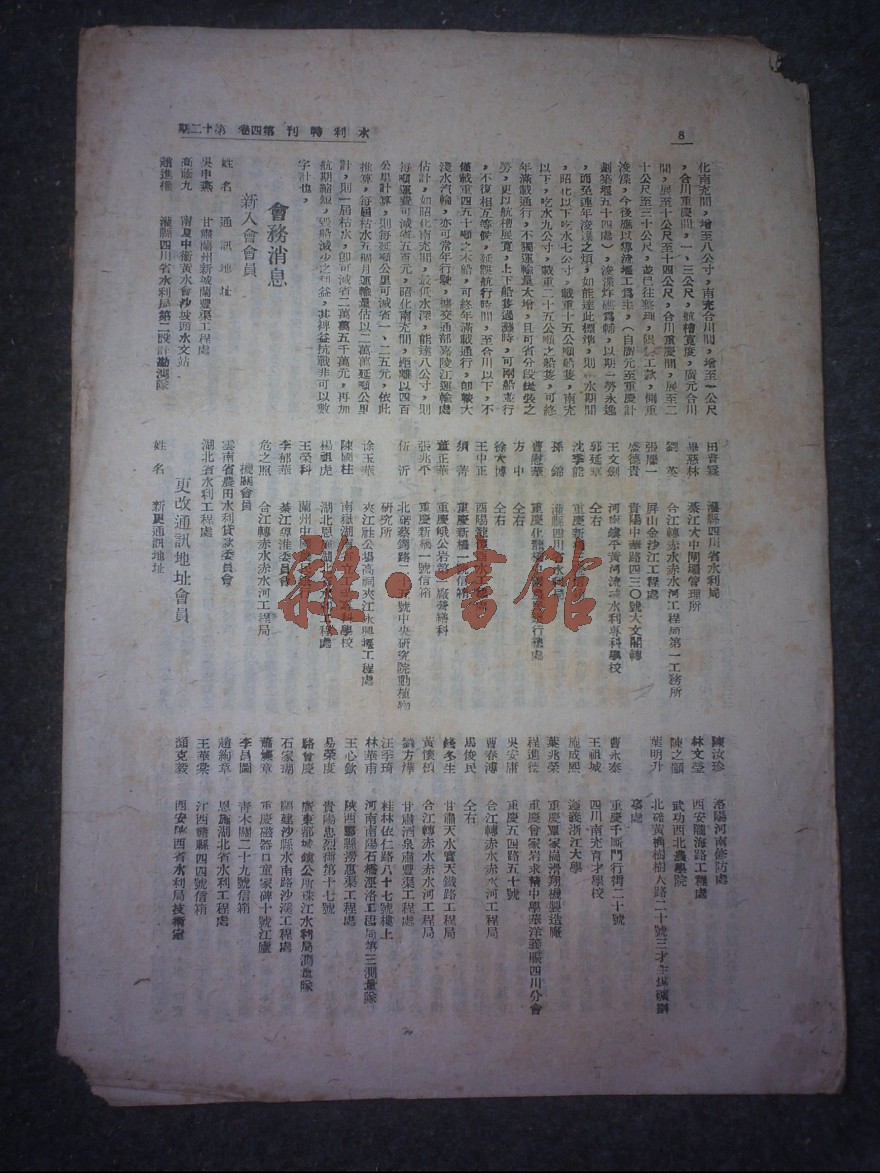 水利特刊 第四卷 第十二期
8
化南充間,增至八公寸,南充合川間,增至一公尺
,合川重慶間,一.三公尺,航槽寬度,廣元合川
間,展至十公尺至十四公尺,合川重慶間,展至二
十公尺至三十公尺,並已往整理,限於工款,側重
浚渫,今後應以導流堰工為主,(自廣元至重慶計
劃築堰五十四處),浚渫炸礁為輔,以期一勞永逸
,而免連年浚渫之煩,如能達此標準,則枯水期間
,昭化以下吃水七公寸,載重十五公噸船隻,南充
以下,吃水九公寸,載重二十五公噸之船隻,可終
年滿載通行,不獨運輸量大增,且可省分段提裝之
勞,更以航槽展寬,上下船隻過灘時,可兩船並行
,不復相互等候,延誤航行時間,至合川以下,不
僅載重四五十噸之木船,可終年滿載通行,卽較大
淺水汽輪,亦可常年行駛,據交通部嘉陵江運輸處
估計,如昭化南充間,最低水深,能達八公寸,則
每噸運費可減省五百元,昭化南充間,距離以四百
公里計算,則每延噸公里可減省一.二五元,依此
推算,每屆枯水五個月運輸量估以二萬萬延噸公里
計,則一屆枯水,卽可減省二萬萬五千萬元,再加
航期縮短,毀船減少之利益,其裨益抗戰非可以數
字計也。
會務消息
新入會會員
姓名 通訊地址
吳中燕 甘肅蘭州新城蘭豐渠工程處
高藤九 甯夏中衛黃水會沙坡頭水文站
趙進權 灌縣四川省水利局第二設計勘測隊
田普霖 灌縣四川省水利局
畢慈林 綦江大中閘壩管理所
劉英 合江轉赤水赤水河工程局第一工務所
張慶一 屏山金沙江工程處
盛德貴 貴陽中華路四三〇號大文閣轉
王文劍 河南鎮平黃河流域水利專科學校
郭延章 仝右
沈季龍 重慶新
孫錦 灌縣四川水利局
曹慰華 重慶化龍橋
方中 仝右
徐大博 仝右
王中正 酉陽龍
須菁 重慶新橋一號信箱
董正華 重慶峨公岩第一廠營繕科
張兆平 重慶新橋一號信箱
伍沂 北碚蔡鍔路二十五號中央研究院動植物
研究所
徐玉華 夾江壯公場高祠夾江永興堰工程處
陳國柱 南嶽湖
楊祖虎 湖北恩施湖北省
王榮科 蘭州中
李郁華 綦江導淮委員會
危之照 合江轉赤水赤水河工程局
機關會員
雲南省農田水利貸款委員會
湖北省水利工程處
更改通訊地址會員
姓名 新更通訊地址
陳汝珍 洛陽河南修防處
林文瑩 西安隴海路工程處
陳之顓 武功西北農學院
葉明升 北碚黃桷樹樹人路二十號三才生煤礦辦
事處
曹永泰 重慶千廝門行街二十號
王祖城 四川南充育才學校
施成熙 遵義浙江大學
葉兆榮 重慶覃家崗滑翔機製造廠
程進德 重慶曾家岩求精中學華洋義賑四川分會
吳安庸 重慶五四路五十號
曹春溥 合江轉赤水赤水河工程局
馬俊民 仝右
錢冬生 甘肅天水寶天鐵路工程局
黃懷慎 合江轉赤水赤水河工程局
劉方燁 甘肅酒泉肅豐渠工程處
汪季琦 桂林依仁路八十七號樓上
林華甫 河南南陽石橋湮洛工巴局第三測量隊
王心欽 陝西鄠縣澇惠渠工程處
易榮度 貴陽忠烈街第十七號
駱曾慶 廣東都城鎮公所珠江水利局測量隊
石家瑚 福建沙縣水南路沙溪工程處
蕭震章 重慶磁器口童家碑十號江廬
李昌圖 青木關二十九號信箱
趙絢章 恩施湖北省水利工程處
王華棠 江西贛縣四四號信箱
顏克毅 西安陝西省水利局技術室
雜·書館